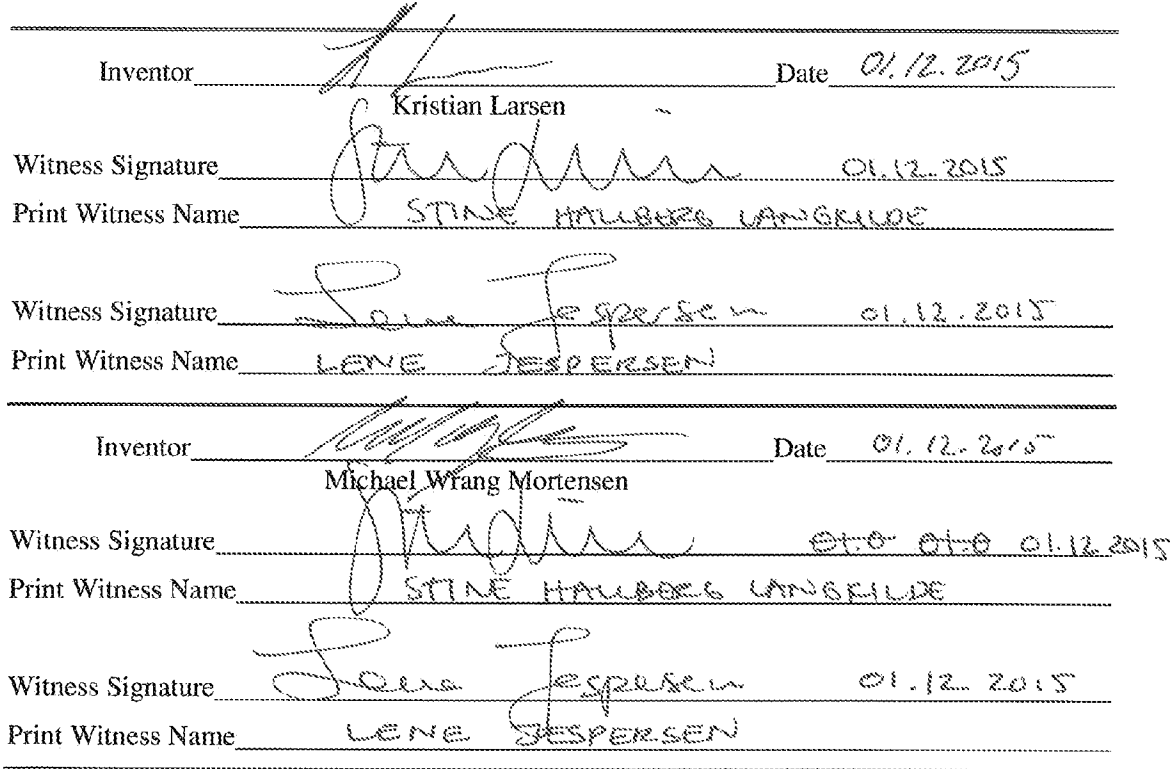 Inventor Date 01.12.2015
Kristian Larsen
Witness Signature 01.12.2015
Print Witness Name STINE HALLBERG LANGKILDE
Witness Signature Lene Jespersen 01.12.2015
Print Witness Name LENE JESPERSEN
Inventor Date 01.12.2015
Michael Wrang Mortensen
Witness Signature 01.0 01.0 01.12.2015
Print Witness Name STINE HALLBERG LANGKILDE
Witness Signature Lene Jespersen 01.12.2015
Print Witness Name LENE JESPERSEN